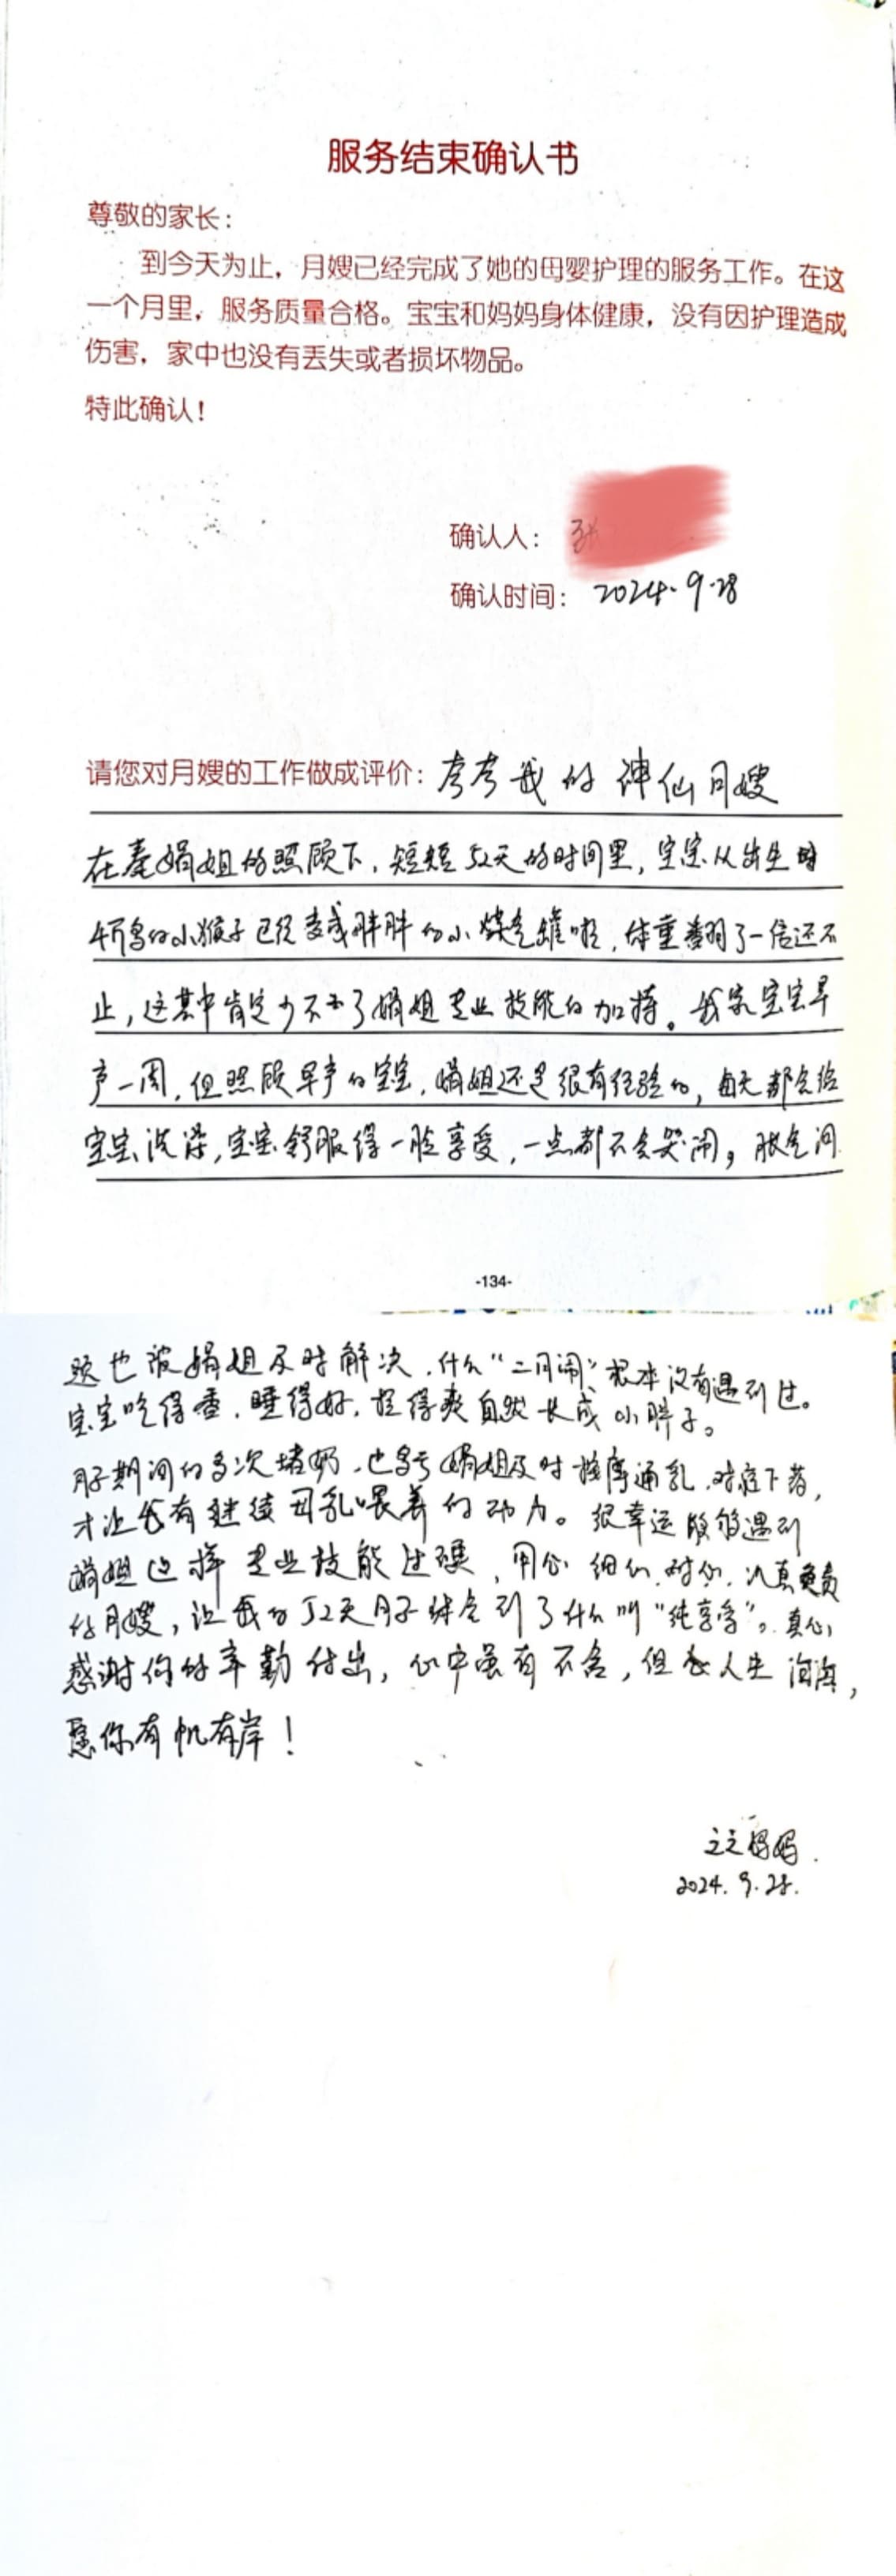 服务结束确认书
尊敬的家长：
到今天为止，月嫂已经完成了她的母婴护理的服务工作。在这
一个月里，服务质量合格。宝宝和妈妈身体健康，没有因护理造成
伤害，家中也没有丢失或者损坏物品。
特此确认！
确认人：张
确认时间：2024.9.28
请您对月嫂的工作做成评价：夸夸我的神仙月嫂
在秦娟姐的照顾下，短短52天的时间里，宝宝从出生时
4斤多的小猴子已经变成胖胖的小煤气罐啦，体重翻了一倍还不
止，这其中肯定少不了娟姐专业技能的加持。我家宝宝早
产一周，但照顾早产的宝宝，娟姐还是很有经验的，每天都会给
宝宝洗澡，宝宝舒服得一脸享受，一点都不会哭闹，胀气问
-134-
题也被娟姐及时解决，什么“二月闹”根本没有遇到过。
宝宝吃得香，睡得好，拉得爽自然长成小胖子。
月子期间的多次堵奶，也多亏娟姐及时按摩通乳，对症下药，
才让我有继续母乳喂养的动力。很幸运能够遇到
娟姐这样专业技能过硬，用心细心，耐心，认真负责
的月嫂，让我的52天月子体会到了什么叫“纯享学”。真心
感谢你的辛勤付出，心中虽有不舍，但人生海海，
愿你有帆有岸！
之之妈妈.
2024.9.28.